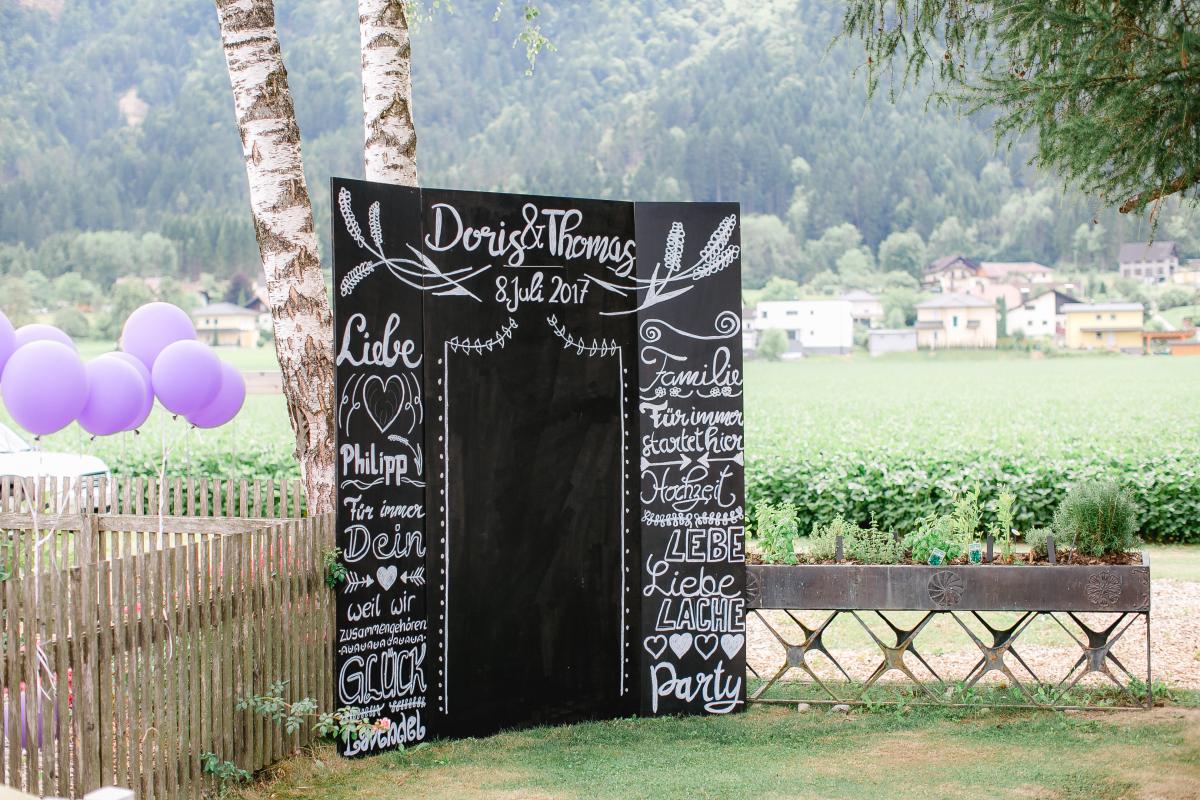 Doris & Thomas
8. Juli 2017
Liebe
Philipp
Für immer
Dein
weil wir
zusammengehören
GLÜCK
Lavendel
Familie
Für immer
startet hier
Hochzeit
LEBE
Liebe
LACHE
Party